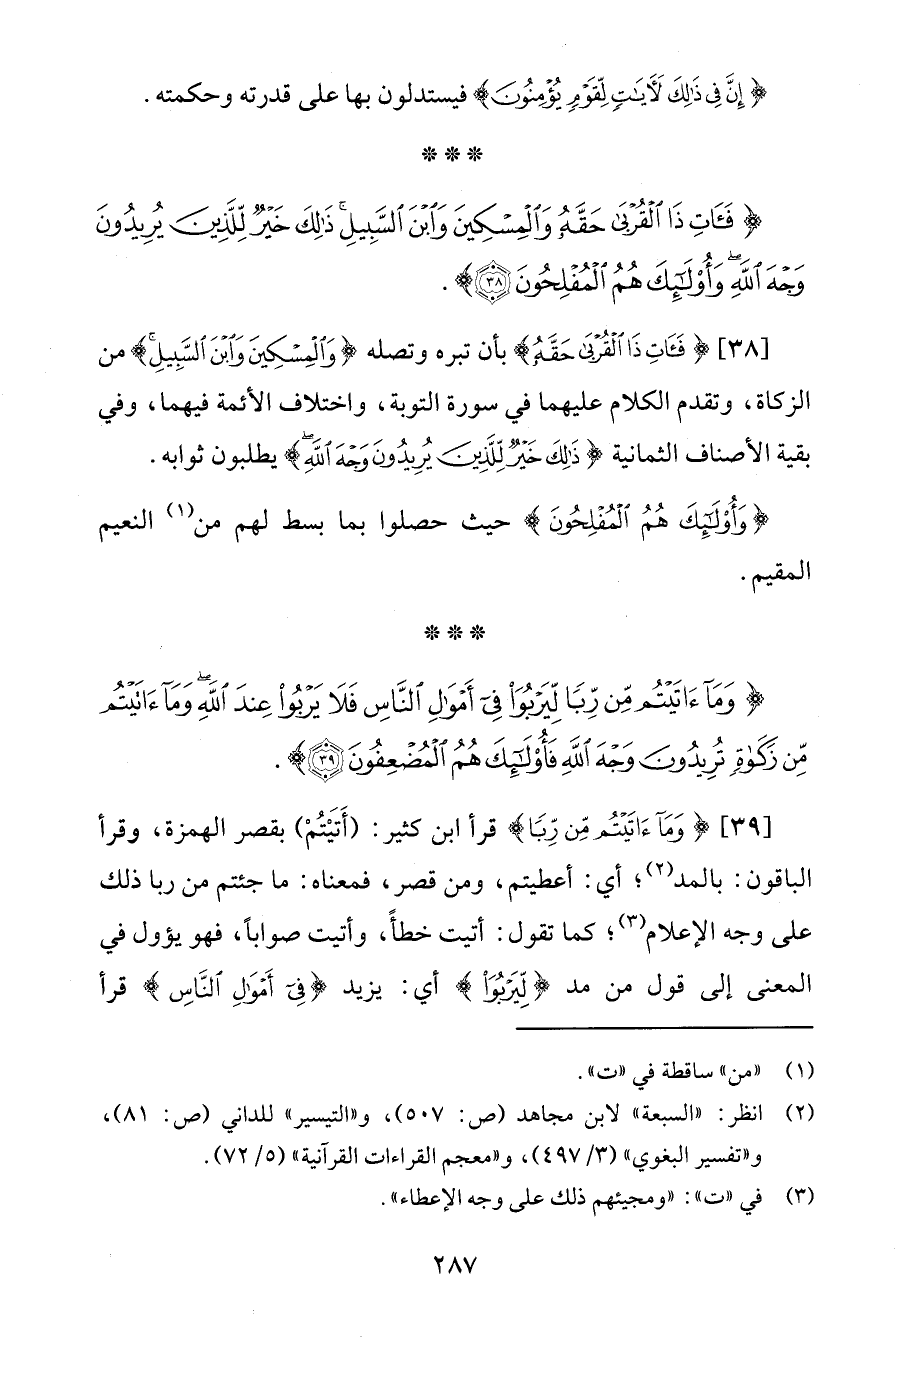 ﴿ إِنَّ فِي ذَٰلِكَ لَأَيَٰتٍ لِّقَوْمٍ يُؤْمِنُونَ﴾ فيستدلون بها على قدرته وحكمته .
* * *
﴿ فَـَٔاتِ ذَا ٱلْقُرْبَىٰ حَقَّهُۥ وَٱلْمِسْكِينَ وَٱبْنَ ٱلسَّبِيلِۚ ذَٰلِكَ خَيْرٌ لِّلَّذِينَ يُرِيدُونَ
وَجْهَ ٱللَّهِۖ وَأُوْلَٰٓئِكَ هُمُ ٱلْمُفْلِحُونَ ٣٨﴾ .
[٣٨] ﴿ فَـَٔاتِ ذَا ٱلْقُرْبَىٰ حَقَّهُۥ﴾ بأن تبره وتصله ﴿ وَٱلْمِسْكِينَ وَٱبْنَ ٱلسَّبِيلِۚ﴾ من
الزكاة، وتقدم الكلام عليهما في سورة التوبة، واختلاف الأئمة فيهما، وفي
بقية الأصناف الثمانية ﴿ ذَٰلِكَ خَيْرٌ لِّلَّذِينَ يُرِيدُونَ وَجْهَ ٱللَّهِۖ﴾ يطلبون ثوابه .
﴿ وَأُوْلَٰٓئِكَ هُمُ ٱلْمُفْلِحُونَ ﴾ حيث حصلوا بما بسط لهم من(١) النعيم
المقيم .
* * *
﴿ وَمَآ ءَاتَيْتُم مِّن رِّبًا لِّيَرْبُوَا۟ فِىٓ أَمْوَٰلِ ٱلنَّاسِ فَلَا يَرْبُوا۟ عِندَ ٱللَّهِۖ وَمَآ ءَاتَيْتُم
مِّن زَكَوٰةٍ تُرِيدُونَ وَجْهَ ٱللَّهِ فَأُوْلَٰٓئِكَ هُمُ ٱلْمُضْعِفُونَ ٣٩﴾ .
[٣٩] ﴿ وَمَآ ءَاتَيْتُم مِّن رِّبًا﴾ قرأ ابن كثير: (أَتَيْتُمْ) بقصر الهمزة، وقرأ
الباقون: بالمد(٢)؛ أي: أعطيتم، ومن قصر، فمعناه: ما جئتم من ربا ذلك
على وجه الإعلام(٣)؛ كما تقول: أتيت خطأً، وأتيت صواباً، فهو يؤول في
المعنى إلى قول من مد ﴿لِّيَرْبُوَا۟ ﴾ أي: يزيد ﴿فِىٓ أَمْوَٰلِ ٱلنَّاسِ ﴾ قرأ
(١) «من» ساقطة في «ت».
(٢) انظر: «السبعة» لابن مجاهد (ص: ٥٠٧)، و«التيسير» للداني (ص: ٨١)،
و«تفسير البغوي» (٣/ ٤٩٧)، و«معجم القراءات القرآنية» (٥/ ٧٢).
(٣) في «ت»: «ومجيئهم ذلك على وجه الإعطاء».
٢٨٧